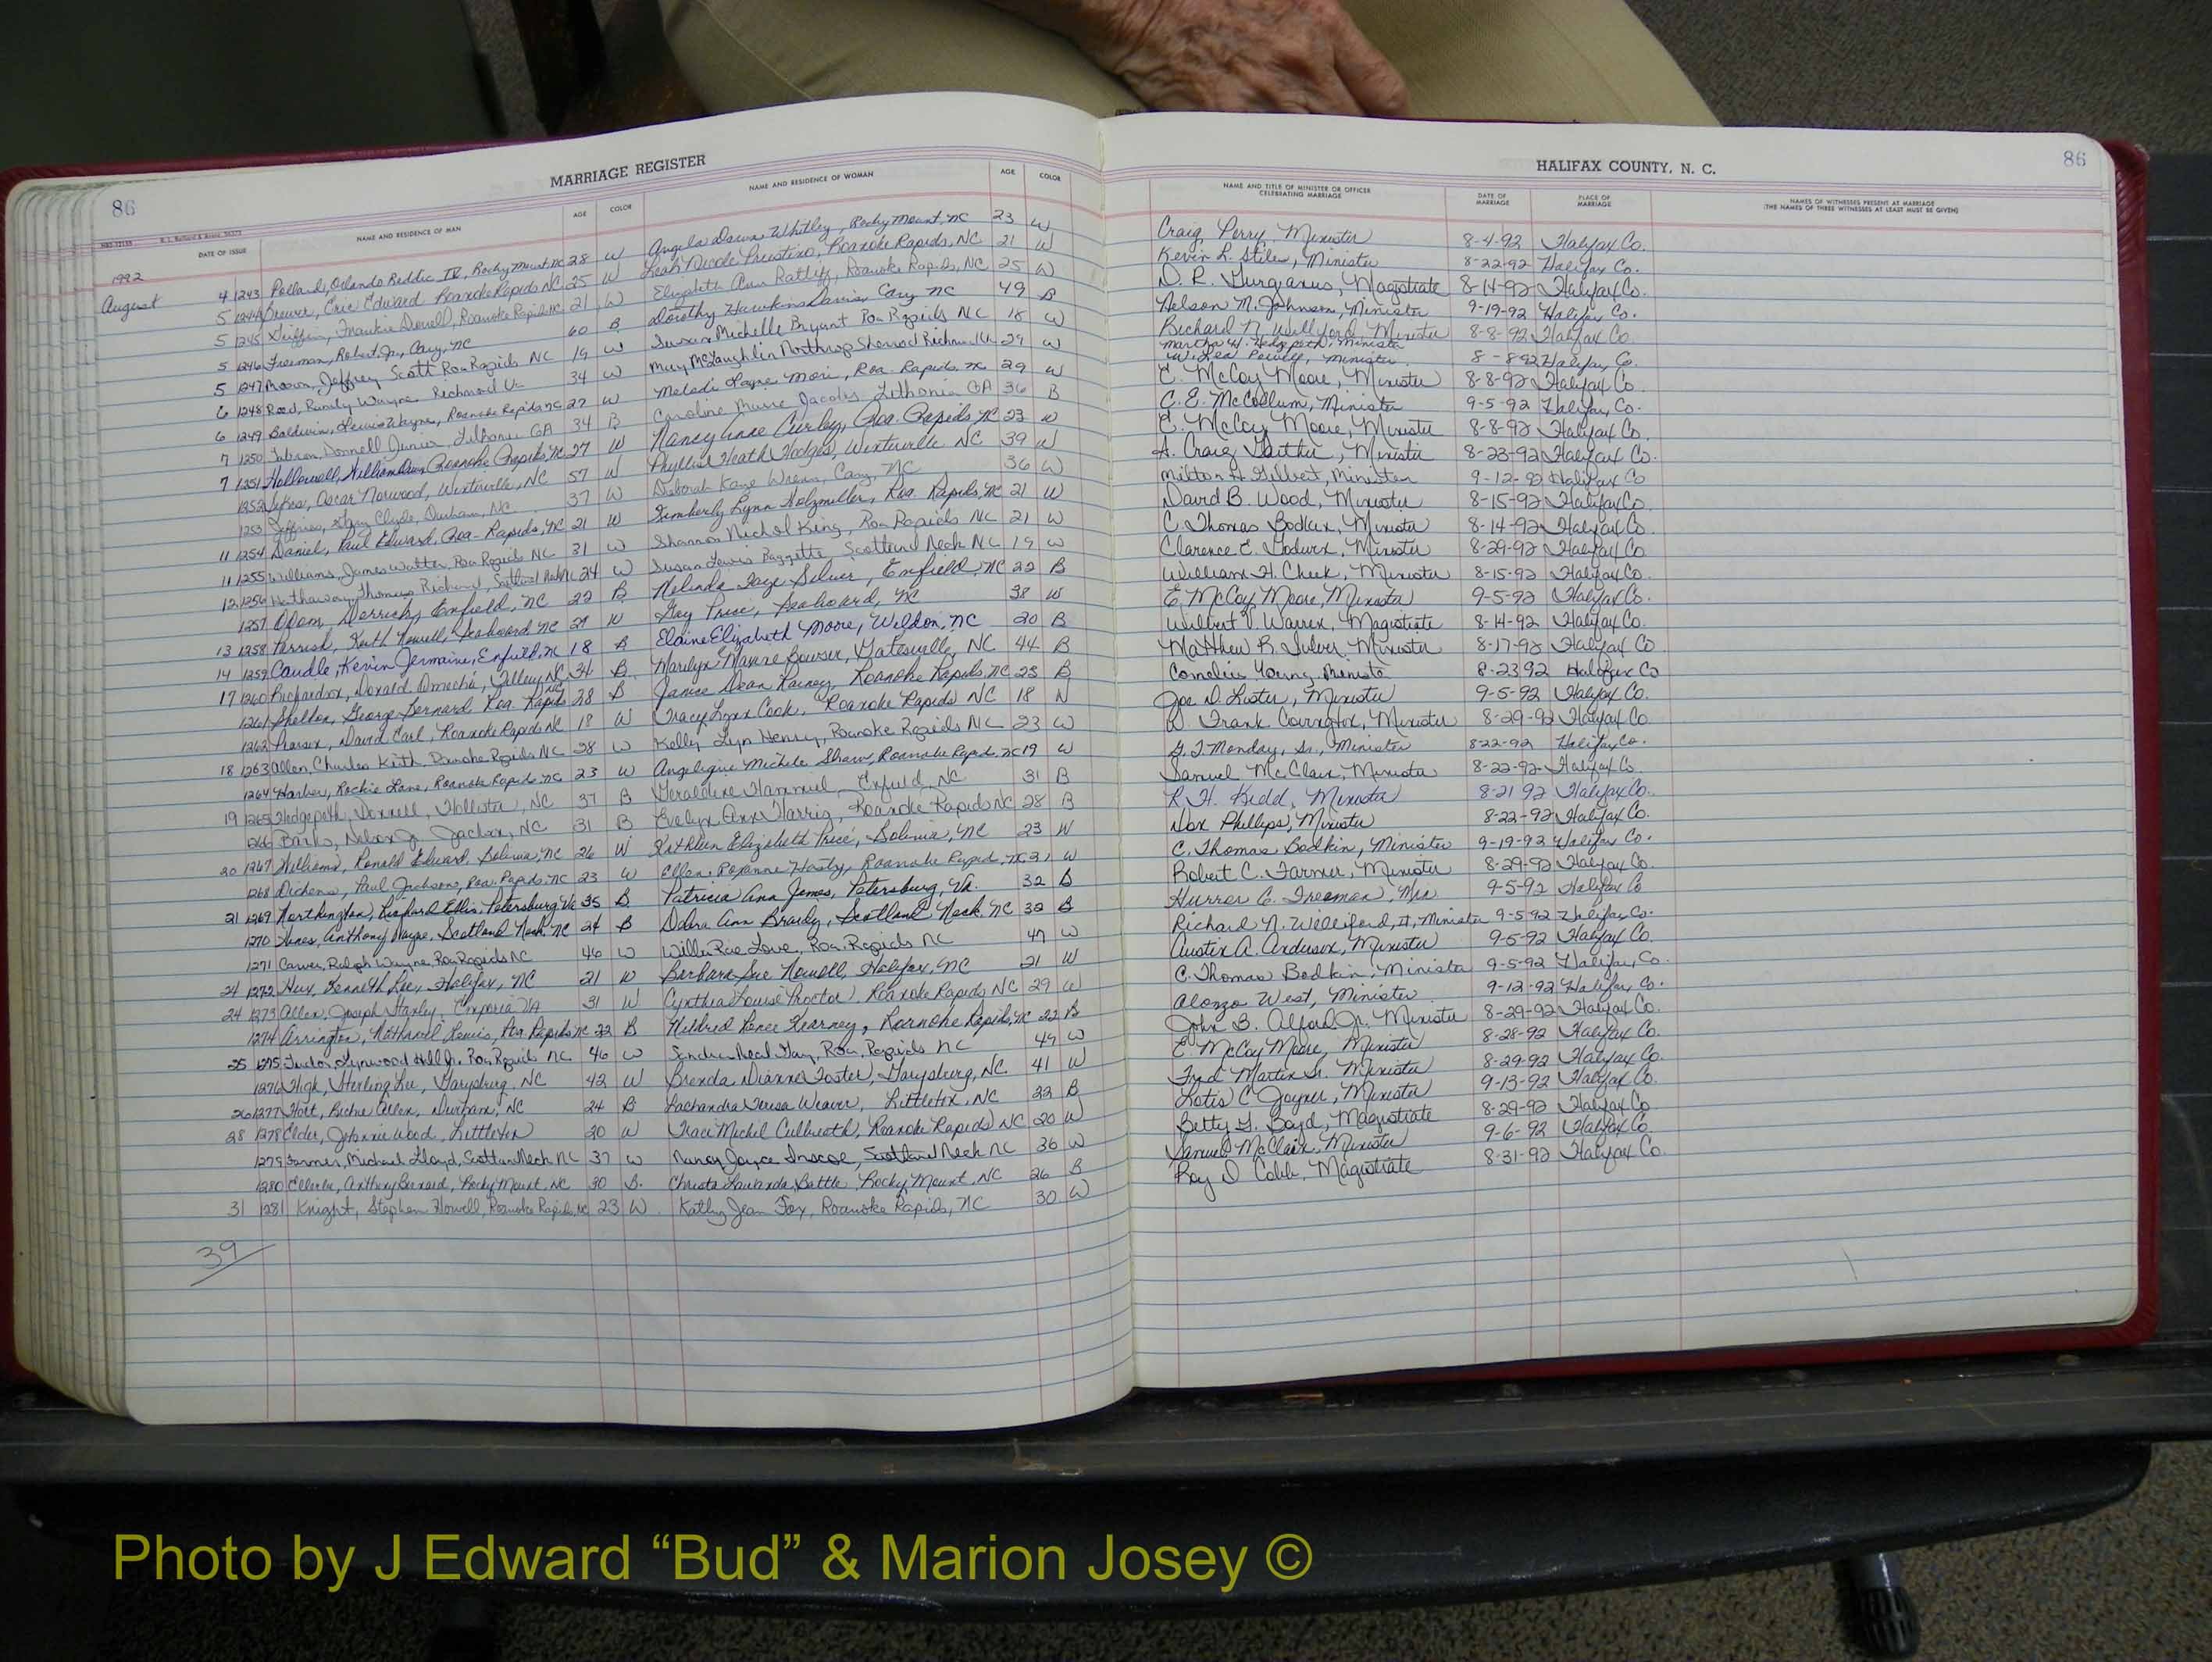 86
MARRIAGE REGISTER
DATE OF ISSUE NAME AND RESIDENCE OF MAN AGE COLOR NAME AND RESIDENCE OF WOMAN AGE COLOR
1992
August 4 1243 Pollard, Orlando Reddic IV, Rocky Mount, NC 28 W Angela Dawn Whitley, Rocky Mount, NC 23 W
5 1244 Brewer, Eric Edward Roanoke Rapids NC 25 W Leah Nicole Roanoke Rapids, NC 21 W
5 1245 Griffin, Frankie Roanoke Rapids NC 21 W Elizabeth Ann Ratliff, Roanoke Rapids, NC 25 W
5 1246 Freeman, Robert Jr, Cary, NC 60 B Dorothy Hawkins Davis Cary NC 49 B
5 1247 Mason, Jeffrey Scott Roa Rapids NC 19 W Susan Michelle Bryant Roa Rapids NC 18 W
6 1248 Reed, Randy Wayne Richmond Va 34 W Mary McLaughlin Northrop Sherrod Richmond Va 29 W
6 1249 Baldwin, Lewis Wayne, Roanoke Rapids NC 27 W Melodi Layne Roa. Rapids NC 29 W
7 1250 Donnell Junior, Lithonia GA 34 B Caroline Jacobs Lithonia GA 36 B
7 1251 Hallowell, William Roanoke Rapids, NC 27 W Nancy Anne Curley, Roa. Rapids NC 23 W
1252 Sykes, Oscar Norwood, Winterville, NC 57 W Phyllis Heath Hodges, Winterville NC 39 W
1253 Clyde, Durham, NC 37 W Deborah Kaye Wrenn, Cary, NC 36 W
11 1254 Daniel, Paul Edward, Roa. Rapids, NC 21 W Kimberly Lynn Holzmiller, Roa. Rapids, NC 21 W
11 1255 Williams, James Walter, Roa Rapids NC 31 W Shannon Nichol King, Roa Rapids NC 21 W
12 1256 Hathaway, Thomas Richard, Scotland Neck NC 24 W Susan Lewis Scotland Neck NC 19 W
1257 Odom, Derrick, Enfield, NC 22 B Melinda Faye Silver, Enfield, NC 22 B
13 1258 Parrish, Keith Seaboard NC 29 W Gay Price, Seaboard, NC 38 W
14 1259 Caudle, Kevin Jermaine, Enfield, NC 18 B Elaine Elizabeth Moore, Weldon, NC 20 B
17 1260 Richardson, Donald NC 34 B Marilyn Bowser, Gatesville, NC 44 B
1261 Shelden, George Bernard Roa. Rapids NC 28 B Janice Dean Rainey, Roanoke Rapids, NC 25 B
1262 Pearson, David Earl, Roanoke Rapids NC 18 W Tracy Lynn Cook, Roanoke Rapids NC 18 W
18 1263 Allen, Charles Keith, Roanoke Rapids NC 28 W Kelly Lyn Henry, Roanoke Rapids NC 23 W
1264 Harber, Rockie Lane, Roanoke Rapids NC 23 W Angelique Michele Shaw, Roanoke Rapids NC 19 W
19 1265 Hedgepeth, Hollister, NC 37 B Geraldine Enfield, NC 31 B
1266 Nelson Jr, Jackson, NC 31 B Evelyn Ann Harris, Roanoke Rapids NC 28 B
20 1267 Williams, Ronald Edward, Bolivia, NC 26 W Kathleen Elizabeth Price, Bolivia, NC 23 W
1268 Dickens, Paul Jackson, Roa. Rapids, NC 23 W Ellen Roxanne Hasty, Roanoke Rapids, NC 21 W
21 1269 Northington, Ellis, Petersburg Va 35 B Patricia Ann James, Petersburg, Va. 32 B
1270 Anthony Wayne, Scotland Neck, NC 24 B Debra Ann Brady, Scotland Neck, NC 32 B
1271 Carver, Ralph Wayne, Roa Rapids NC 46 W Willa Rae Love, Roa. Rapids NC 47 W
24 1272 Hux, Kenneth Lee, Halifax, NC 21 W Barbara Sue Nowell, Halifax, NC 21 W
24 1273 Allen, Joseph Stanley, Emporia VA 31 W Cynthia Louise Proctor, Roanoke Rapids NC 29 W
1274 Arrington, Nathaniel Lewis, Roa Rapids NC 22 B Mildred Renee Kearney, Roanoke Rapids, NC 22 B
25 1275 Tudor, Lynwood Hill Jr, Roa Rapids NC 46 W Sandra Neal Gay, Roa. Rapids NC 49 W
1276 High, Sterling Lee, Garysburg, NC 42 W Brenda Dianne Foster, Garysburg, NC 41 W
26 1277 Hart, Richie Allen, Durham, NC 24 B Lachandra Teresa Weaver, Littleton, NC 22 B
28 1278 Elder, Johnnie Wood, Littleton 30 W Traci Michel Culbreath, Roanoke Rapids NC 20 W
1279 Farmer, Michael Lloyd, Scotland Neck NC 37 W Nancy Joyce Inscoe, Scotland Neck NC 36 W
1280 Ellerbe, Anthony Bernard, Rocky Mount, NC 30 B Christa Battle, Rocky Mount, NC 26 B
31 1281 Knight, Stephen Howell, Roanoke Rapids, NC 23 W Kathy Jean Fox, Roanoke Rapids, NC 30 W
39
86
HALIFAX COUNTY, N. C.
NAME AND TITLE OF MINISTER OR OFFICER CELEBRATING MARRIAGE DATE OF MARRIAGE PLACE OF MARRIAGE NAMES OF WITNESSES PRESENT AT MARRIAGE (THE NAMES OF THREE WITNESSES AT LEAST MUST BE GIVEN)
Craig Perry, Minister 8-4-92 Halifax Co.
Kevin L. Stiles, Minister 8-22-92 Halifax Co.
D. R. Gurganus, Magistrate 8-14-92 Halifax Co.
Nelson M. Johnson, Minister 9-19-92 Halifax Co.
Richard N. Williford Minister 8-8-92 Halifax Co.
Martha H. Hedgpeth, Minister
Powell, Minister 8-8-92 Halifax Co.
E. McCoy Moore, Minister 8-8-92 Halifax Co
C. E. McCollum, Minister 9-5-92 Halifax, Co.
E. McCoy Moore, Minister 8-8-92 Halifax Co.
A. Craig Minister 8-23-92 Halifax Co.
Milton H. Gilbert, Minister 9-12-92 Halifax Co
David B. Wood, Minister 8-15-92 Halifax Co.
C. Thomas Bodkin, Minister 8-14-92 Halifax Co.
Clarence E. Godwin, Minister 8-29-92 Halifax Co
William H. Cheek, Minister 8-15-92 Halifax Co.
E. McCoy Moore, Minister 9-5-92 Halifax Co.
Wilbert V. Warren, Magistrate 8-14-92 Halifax Co.
Matthew R. Silver, Minister 8-17-92 Halifax Co
Cornelius Young Minister 8-23 92 Halifax Co
Joe D. Lister, Minister 9-5-92 Halifax Co.
D. Frank Covington, Minister 8-29-92 Halifax Co
G. T. Monday, Sr., Minister 8-22-92 Halifax Co.
Samuel McClain, Minister 8-22-92 Halifax Co.
R. H. Kidd, Minister 8-21 92 Halifax Co.
Don Phillips, Minister 8-22-92 Halifax Co.
C. Thomas Bodkin, Minister 9-19-92 Halifax Co.
Robert C. Farmer, Minister 8-29-92 Halifax Co.
C. Freeman, Min 9-5-92 Halifax Co
Richard N. Williford, II, Minister 9-5-92 Halifax Co.
Austin A. Anderson, Minister 9-5-92 Halifax Co.
C. Thomas Bodkin, Minister 9-5-92 Halifax, Co.
Alonzo West, Minister 9-12-92 Halifax Co.
John B. Alford Jr. Minister 8-29-92 Halifax Co.
E. McCoy Moore, Minister 8-28-92 Halifax Co
Fred Martin Sr. Minister 8-29-92 Halifax Co
Lotis C. Joyner, Minister 9-13-92 Halifax Co.
Betty G. Boyd, Magistrate 8-29-92 Halifax Co
Samuel McClain, Minister 9-6-92 Halifax Co
Roy D Cobb, Magistrate 8-31-92 Halifax Co.
Photo by J Edward “Bud” & Marion Josey ©